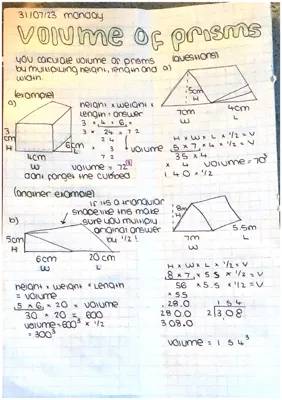 31/07/23 monday
VOLUME OF PRISMS
you calculate volume of prisms
by multiplying height, length and
width.
(example)
a)
height x weight x
length = answer
3 x 4 x 6 =
3 x 24 = 72
3 cm
H
6cm
L
4cm
W
volume = 72
dont forget the cubed
(another example)
if its a triangular
shape like this make
sure you multiply
original answer
by 1/2!
b)
5cm
H
6cm
W
20 cm
L
height x weight x length
= volume
5 x 6 x 20 = volume
30 x 20 = 600
volume = 600³ x 1/2
= 300³
(questions)
a)
5cm
H
7cm
W
4cm
L
H x W x L x 1/2 = V
5 x 7 x 4 x 1/2 = V
35 x 4
volume = 70³
140 x 1/2
8m
H
7m
W
5.5m
L
H x W x L x 1/2 = V
8 x 7 x 5.5 x 1/2 = V
56 x 5.5 x 1/2
x 5.5
28.0
280.0
308.0
154
2 308
volume = 154³